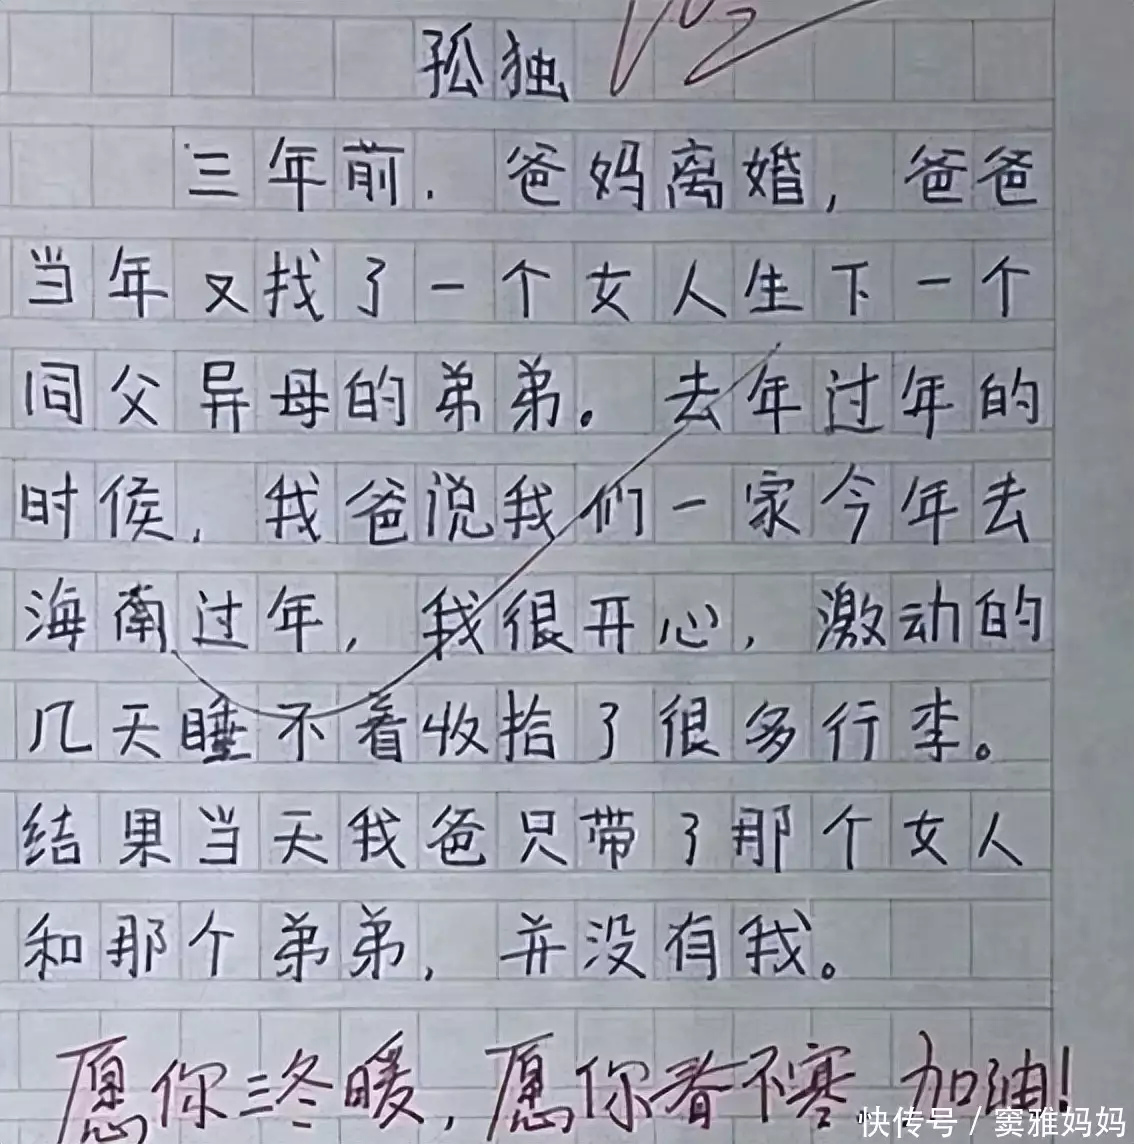 孤独
三年前. 爸妈离婚, 爸爸
当年又找了一个女人生下一个
同父异母的弟弟。去年过年的
时侯, 我爸说我们一家今年去
海南过年, 我很开心, 激动的
几天睡不着收拾了很多行李。
结果当天我爸只带了那个女人
和那个弟弟, 并没有我。
愿你三冬暖, 愿你春不寒, 加油!
快传号 / 窦雅妈妈